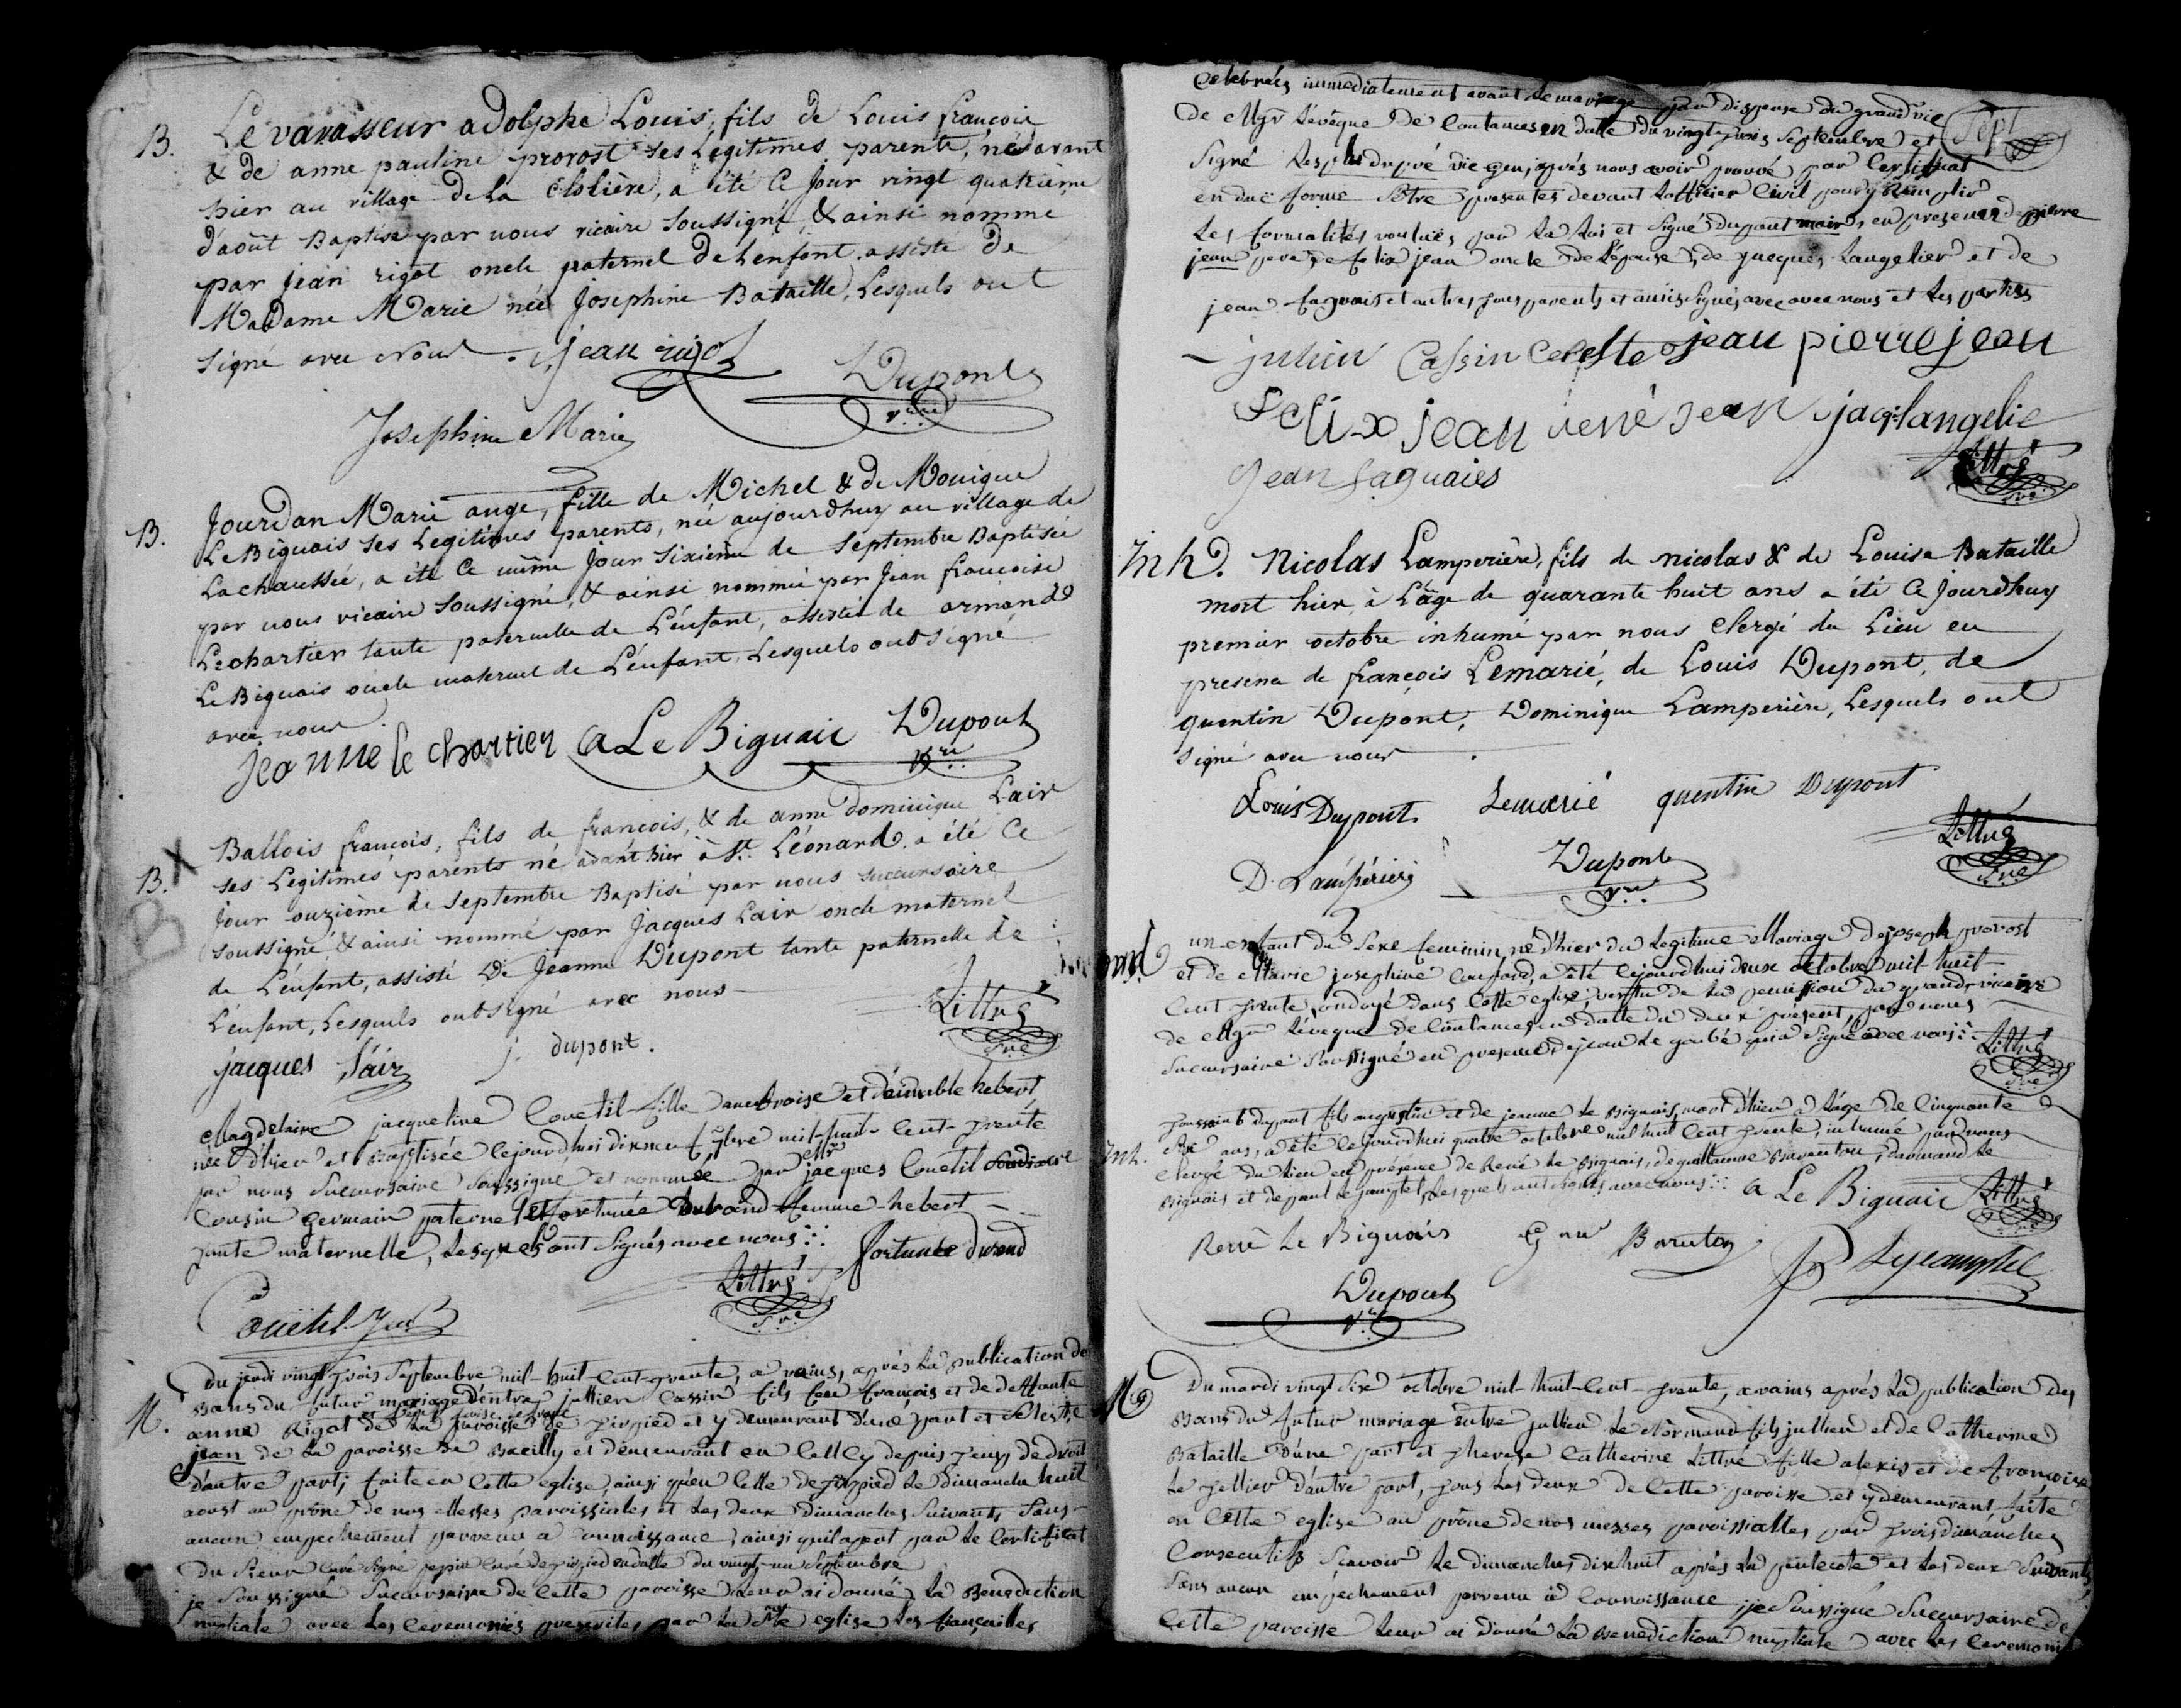 B. Levavasseur adolphe Louis, fils de Louis françois
& de anne pauline provost ses Legitimes parents, né avant
hier au village de la Cholière, a été Ce Jour vingt quatrième
d'août Baptisé par nous vicaire soussigné, & ainsi nommé
par Jean rigot oncle paternel de L'enfant assisté de
Madame Marie née Josephine Bataille, Lesquels out
signé avec Nous. jean rigot
Dupont
vre
Josephine Marie
B. Jourdan Marie ange, fille de Michel & de Monique
Le Biguais ses Legitimes parents, née aujourdhuy au village de
La chaussée, a été Ce même Jour sixième de septembre Baptisée
par nous vicaire soussigné, & ainsi nommée par Jean françoise
Lechartier tante paternelle de L'enfant, assistée de armand
Le Biguais oncle maternel de L'enfant, Lesquels out signé
avec nous.
Jeanne le chartier A Le Biguais Dupont
B. Ballois françois, fils de françois, & de anne dominique Lair
ses Legitimes parents né avant hier à St. Léonard a été Ce
Jour onzième de septembre Baptisé par nous succursaire
soussigné, & ainsi nommé par Jacques Lair oncle maternel
de L'enfant, assisté De Jeanne Dupont tante paternelle de
L'enfant, Lesquels out signé avec nous
jacques Lair j. dupont. Littré
Sre
Magdelaine jacqueline Couetil fille ambroise et d'aimable hebert,
née d'hier et Baptisée cejourd'hui dixneuf 7bre mil-huit-Cent-trente
par nous Succursaire Soussigné et nommée par Mr jacques Couetil
Cousin germain paternel et fortunée Durand femme hebert
tante maternelle, Lesquels ont Signés avec nous fortunée Durand
Littré
Sre
Couëtil
Du jeudi vingt trois Septembre mil-huit-Cent-trente, a vains, après La publication des
M. Bans du futur mariage d'entre jullien Cassin fils feu françois et de deffunte
anne Rigot de La paroisse de pirpied et y demeurant d'une part et Celeste
jean de La paroisse de Bacilly et demeurant en Celle Cy depuis tems de droit
d'autre part, faite en Cette eglise, ainsi qu'en Celle de pirpied Le dimanche huit
aoust au prône de nos Messes paroissiales et Les deux dimanches Suivants Sans
aucun empechement parvenu a Connoissance, ainsi qu'il apert par Le Certificat
Du Sieur Curé Signé pepin Curé de pirpied en datte du vingt-un Septembre
je Soussigné Succursaire de Cette paroisse Leur ai donné La Benediction
nuptiale avec Les Ceremonies prescrites par La Ste eglise Les fiançailles
Celebrées immediatement avant Le mariage par dispense du grand vic
de Mgr L'évêque De Coutances en datte du vingt trois Septembre et
Sept
Signé Lesplu dupré vic gen, après nous avoir prouvé par Certificat
en due forme S'être presentés devant L'officier Civil pour y Remplir
Les formalités voulues par La Loi et Signé dupont maire, en presence de pierre
jean pere, de felix jean oncle de L'épouse, de jacques Langelier et de
jean faguais et autres tous parents et amis Signés avec avec nous et Les parties
julien Cassin Celeste jean pierre jean
Felix jean rené jean jacq langelie
Jean faguaies Littré
Sre
Inh. Nicolas Lamperière, fils de nicolas & de Louise Bataille
mort hier, à L'âge de quarante huit ans a été Ce Jourdhuy
premier octobre inhumé par nous Clergé du Lieu en
presence de françois Lemarié, de Louis Dupont, de
quentin Dupont, Dominique Lamperière, Lesquels out
signé avec nous.
Louis Dupont Lemarié quentin Dupont
D. Lampérière Dupont Littré
vre Sre
un enfant du Sexe feminin, né d'hier du Legitime Mariage de joseph provost
et de Marie josephine a été Cejourdhui deux octobre mil-huit
Cent trente, ondoyé dans Cette eglise, vertu de La permission du grand vicaire
de Mgr L'eveque de Coutances en datte du deux present, par nous
Succursaire Soussigné en presence de jean Le qui a Signé avec nous Littré
Sre
toussaint dupont fils augustin et de jeanne Le Biguais, mort d'hier a L'âge de Cinquante
Inh. Six ans, a été Cejourdhui quatre octobre mil huit Cent trente, inhumé par nous
Clergé du Lieu en présence de René Le Biguais, de guillaume Barenton, d'armand Le
Biguais et de paul Lejamptel, Lesquels ont signés avec nous A Le Biguais Littré
Sre
René Le Biguais Barenton P Lejamptel
Dupont
vre
Du mardi vingt Six octobre mil-huit-Cent-trente, a vains après La publication des
M. Bans du futur mariage entre jullien Le Normand fils jullien et de Catherine
Bataille d'une part et therese Catherine Littré fille alexis et de françoise
Le tellier d'autre part, tous Les deux de Cette paroisse et y demeurant, faite
en Cette eglise au prône de nos messes paroissialles par trois dimanches
Consecutifs Scavoir Le dimanche dixhuit après La pentecote et Les deux Suivants
Sans aucun empechement parvenu à Connoissance je Soussigné Succursaire de
Cette paroisse Leur ai donné La Benediction nuptiale avec Les Ceremonies